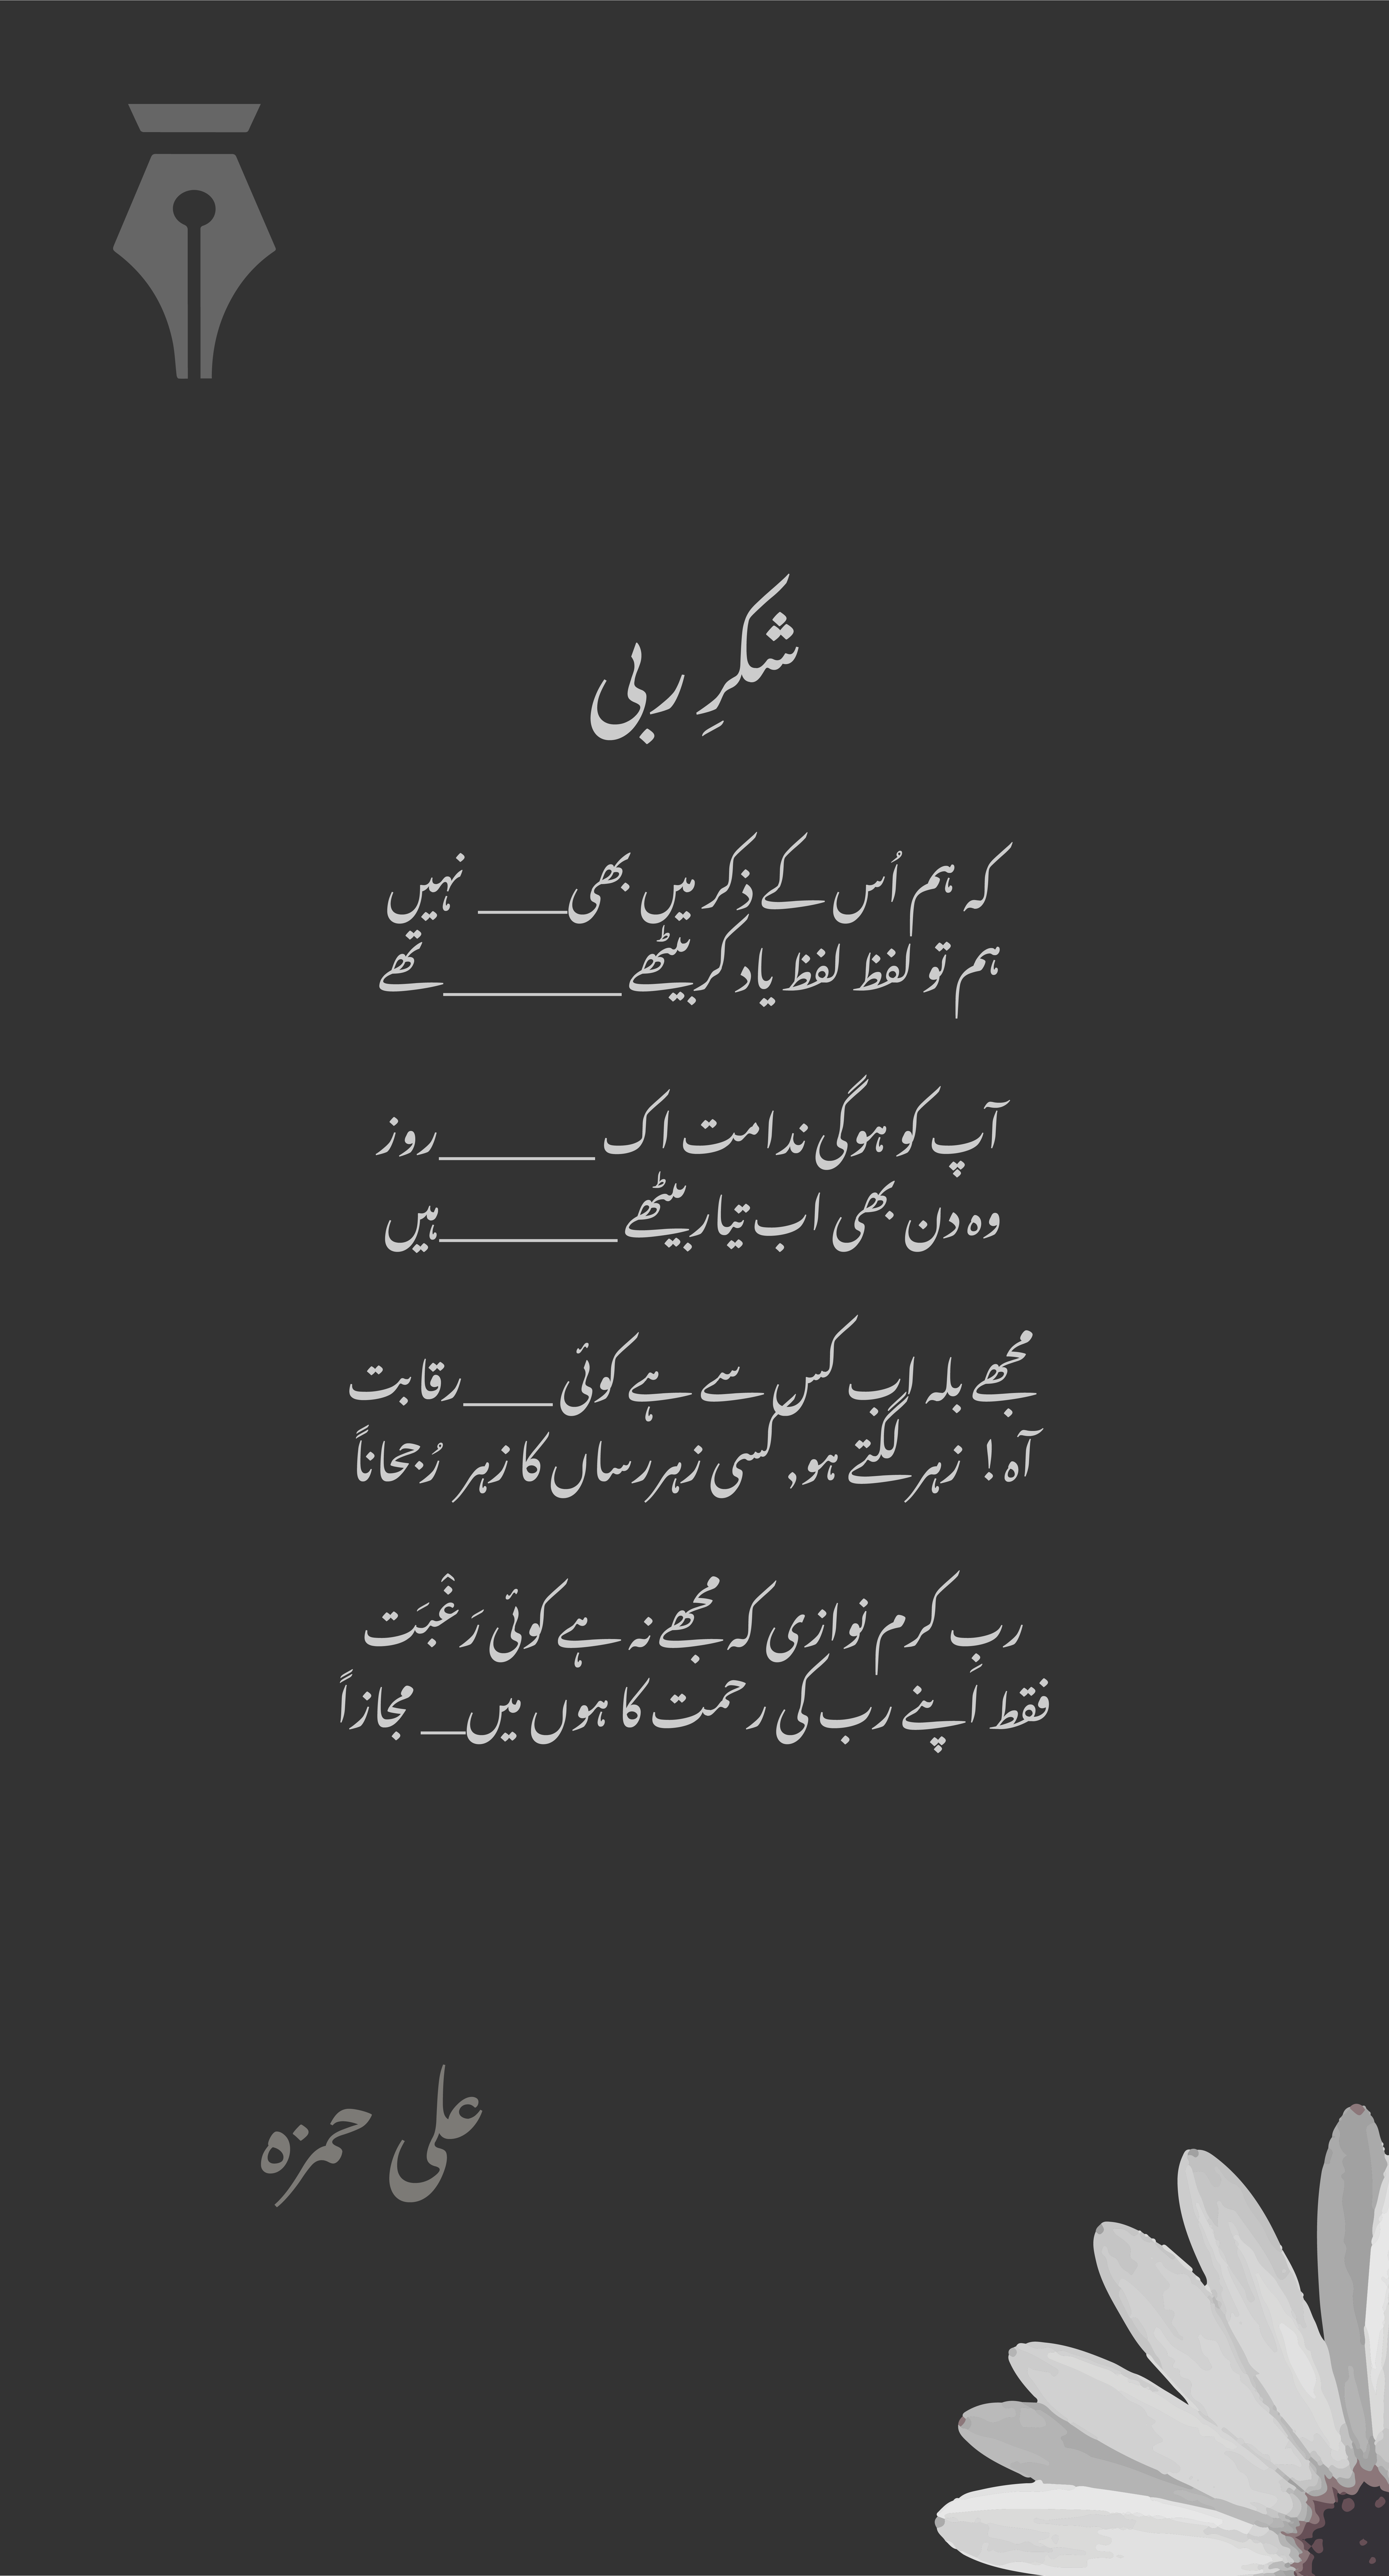 شکرِ ربی
کہ ہم اُس کے ذکر میں بھی____ نہیں
ہم تو لفظ لفظ یاد کر بیٹھے ________تھے
آپ کو ہوگی ندامت اک _______روز
وہ دن بھی اب تیار بیٹھے ________ہیں
مجھے بلہ اب کس سے ہے کوئی ____رقابت
آہ! زہر لگتے ہو, کسی زہر رساں کا زہر رُجحاناً
ربِ کرم نوازی کہ مجھے نہ ہے کوئی رَغْبَت
فقط اَپنے رب کی رحمت کا ہوں میں__ مجازاً
علی حمزہ